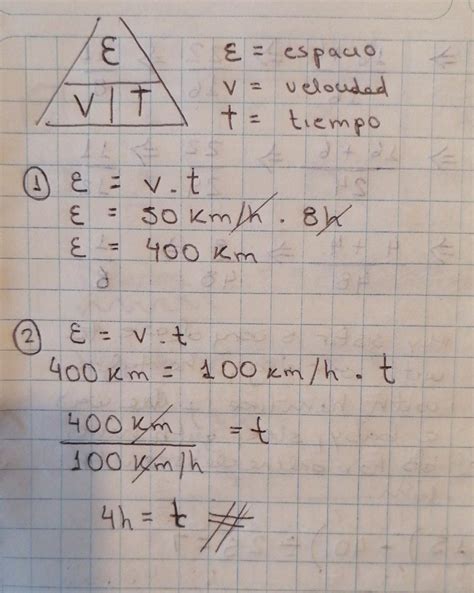 ε
V | T
ε = espacio
v = velocidad
t = tiempo
① ε = v . t
ε = 50 km/h . 8h
ε = 400 km
② ε = v . t
400 km = 100 km/h . t
400 km = t
100 km/h
4h = t